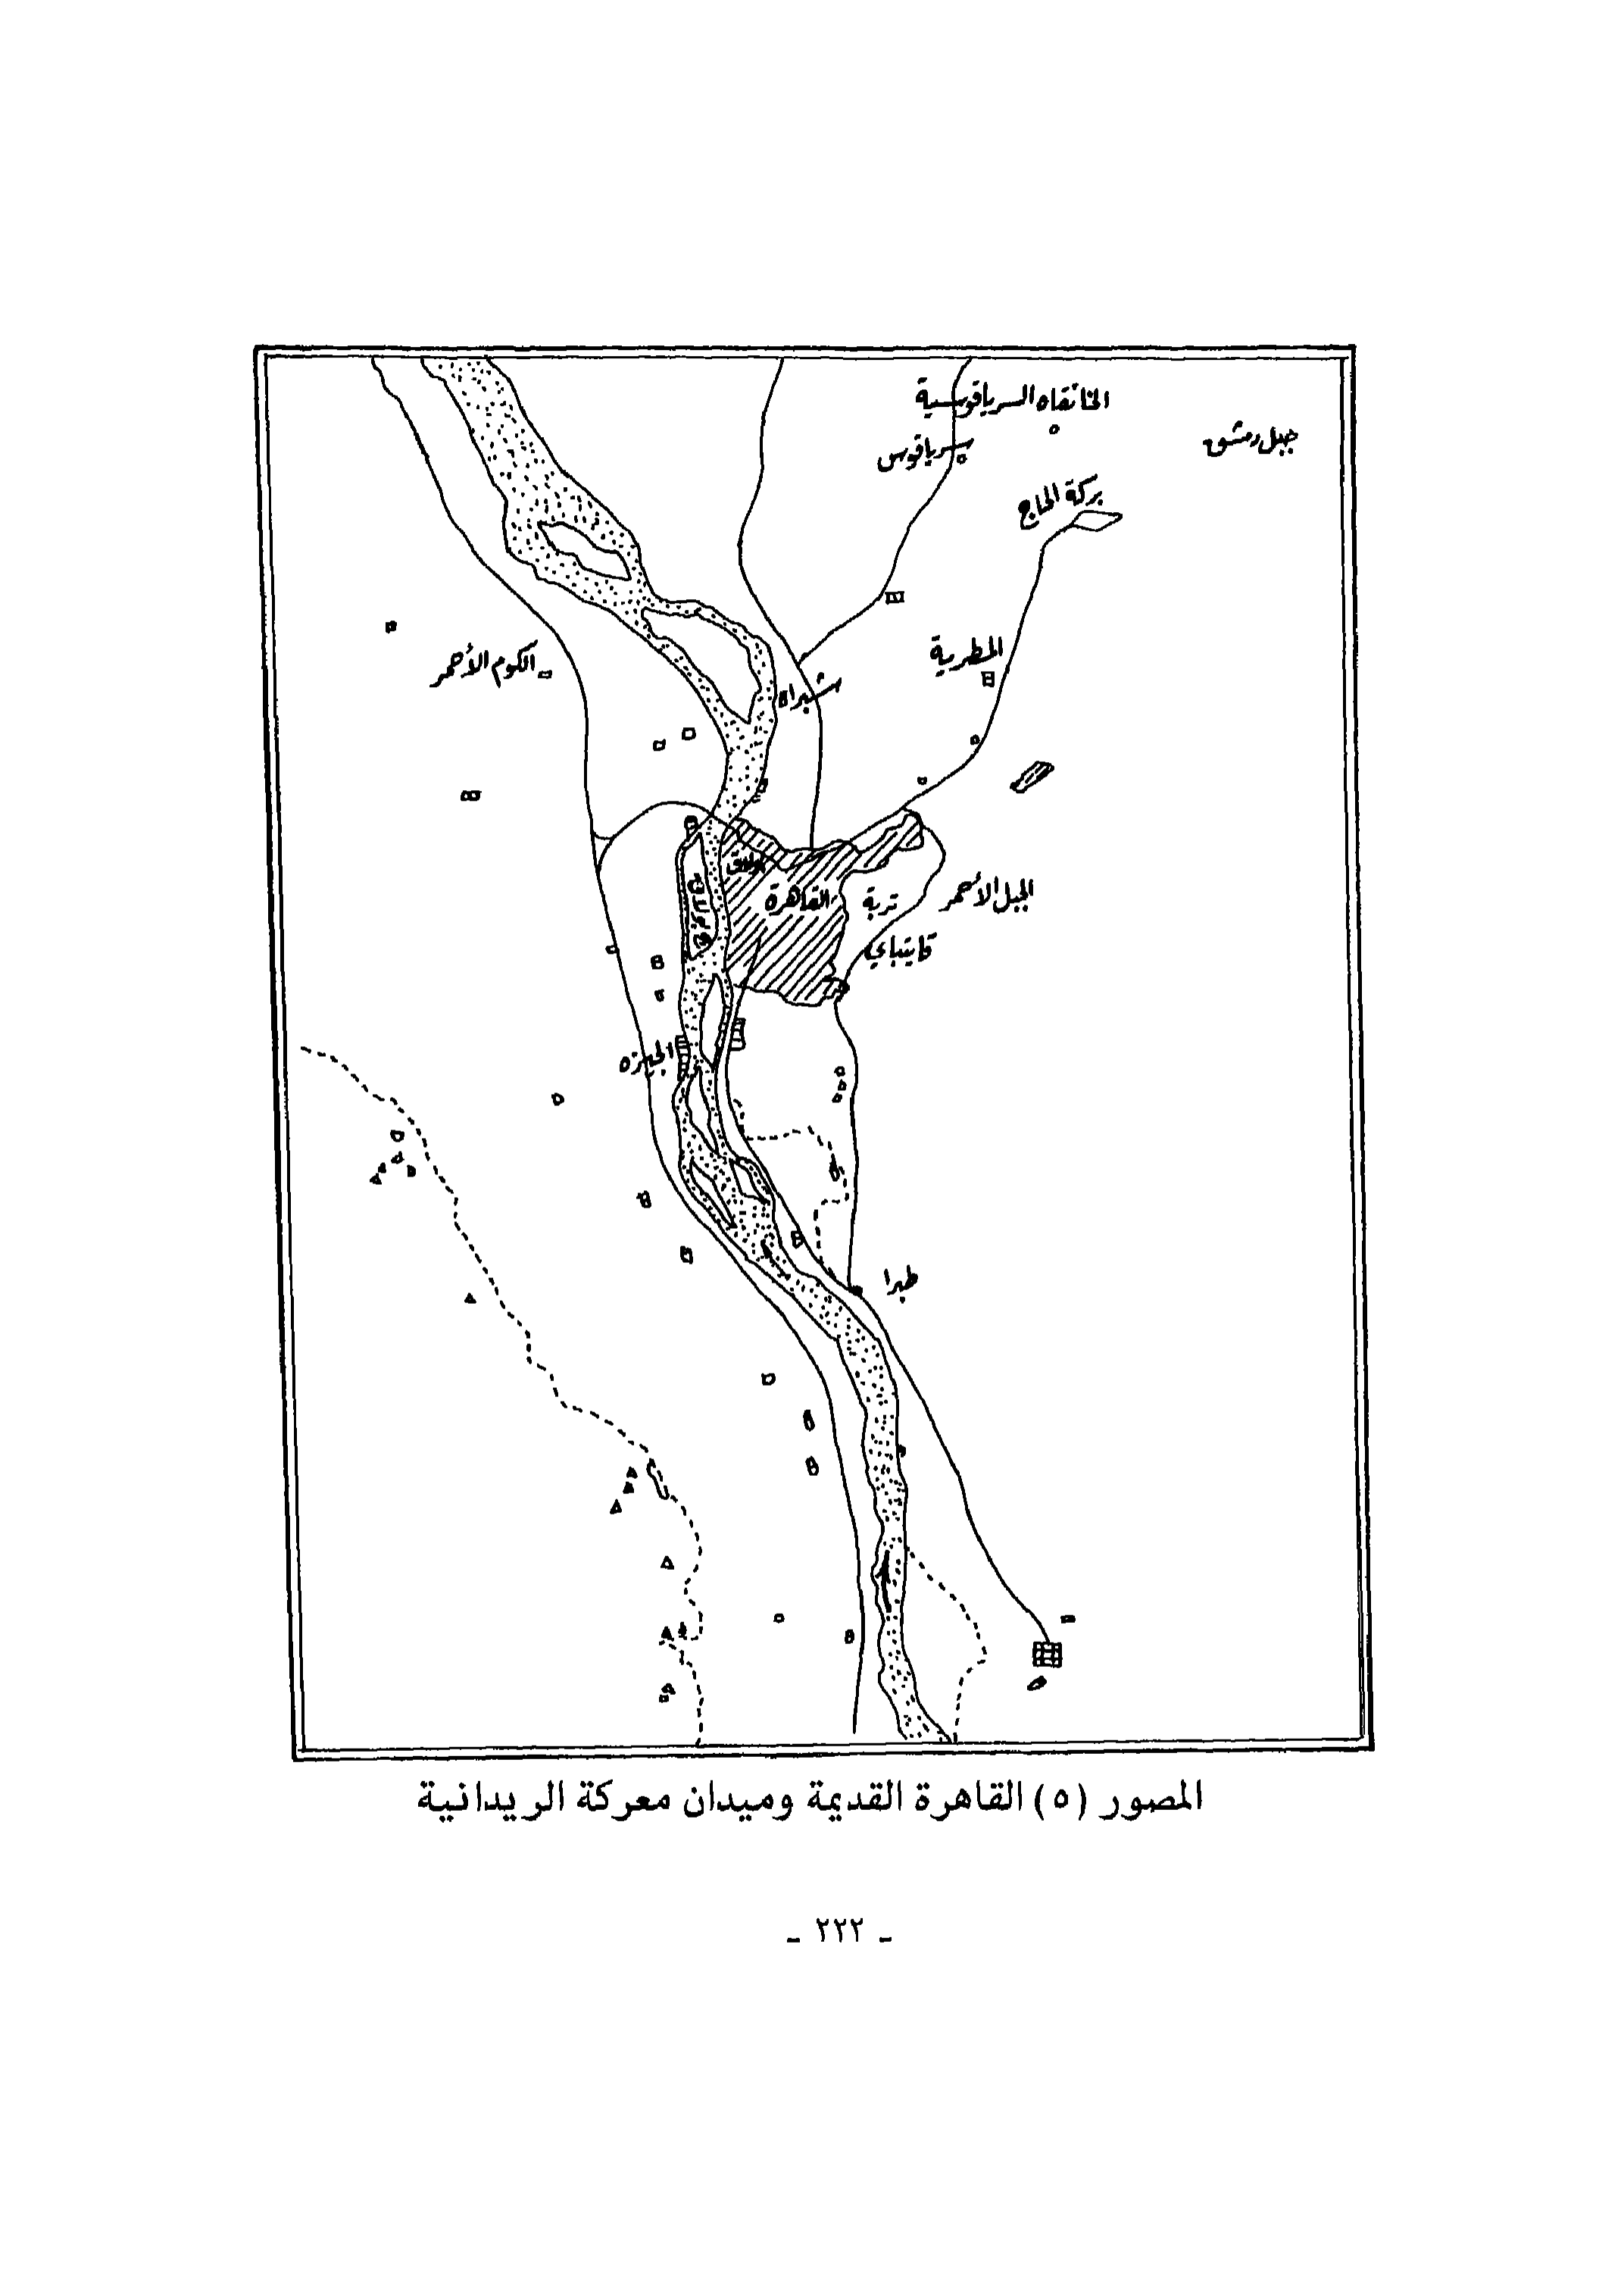 الخانقاه السرياقوسية
جبل دمشق
سرياقوس
بركة الحاج
المطرية
الكوم الأحمر
شبراه
بولاق
القاهرة
تربة
قايتباي
الجبل الأحمر
الجيزه
طبرا
المصور (٥) القاهرة القديمة وميدان معركة الريدانية
ـ ٢٢٢ ـ